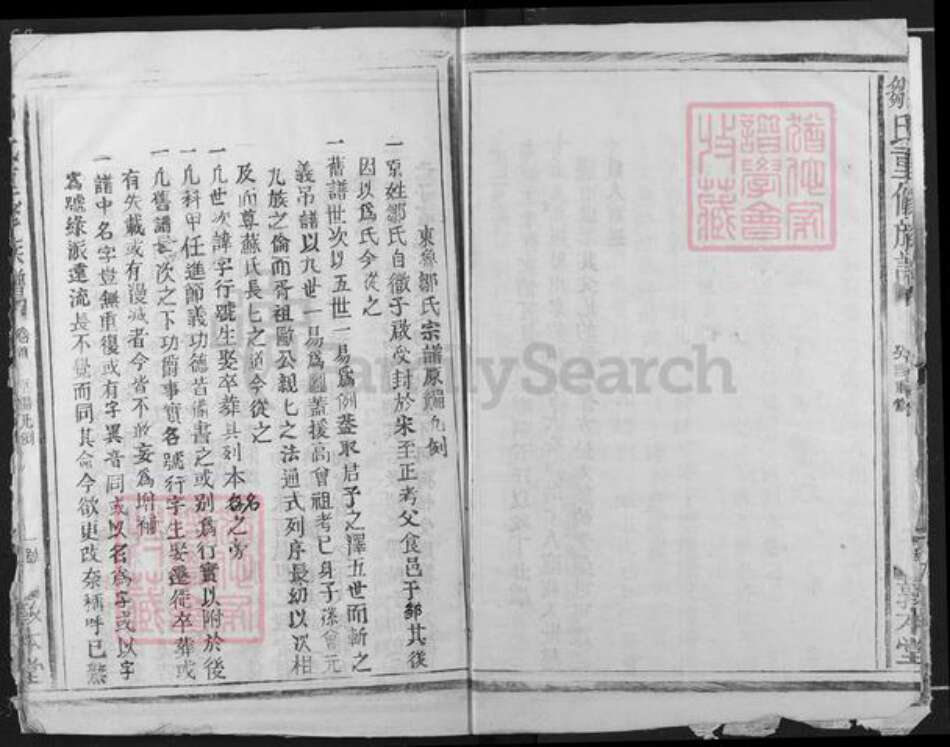 鄒氏重修族譜
敦本堂
猶他家譜學會收藏
東魯鄒氏宗譜原編凡例
一原姓鄒氏自微子啟受封於宋至正考父食邑于鄒其後
因以為氏今從之
一舊譜世次以五世一易為例蓋取君子之澤五世而斬之
義吊譜以九世一易為圖蓋援高曾祖考已身子孫曾元
九族之倫而胥祖歐公親匕之法通式列序長幼以次相
及而尊蘇氏長匕之道今從之
一凡世次諱字行號生娶卒葬具刻本名之旁
一凡科甲任進節義功德昔備書之或別為行實以附於後
一凡舊譜世次之下功爵事實各號行字生娶遷徙卒葬或
有失載或有漫滅者今皆不敢妄為增補
一譜中名字豈無重復或有字異音同或以名為字或以字
為號緣派遠流長不覺而同其命今欲更改奈稱呼已久
族譜
卷首
原編凡例
敦本堂
FamilySearch